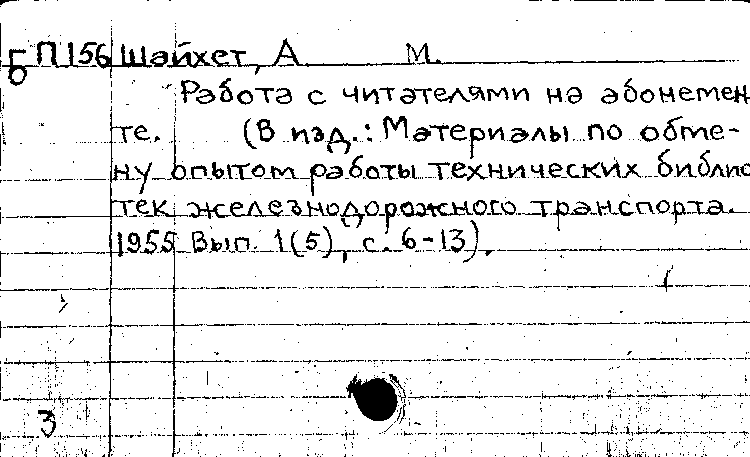 Б П156 Шайхет, А. М.
Работа с читателями на абонемен
те. (В изд.: Материалы по обме-
ну опытом работы технических библио
тек железнодорожного транспорта.
1955 Вып. 1(5), с. 6-13).
3